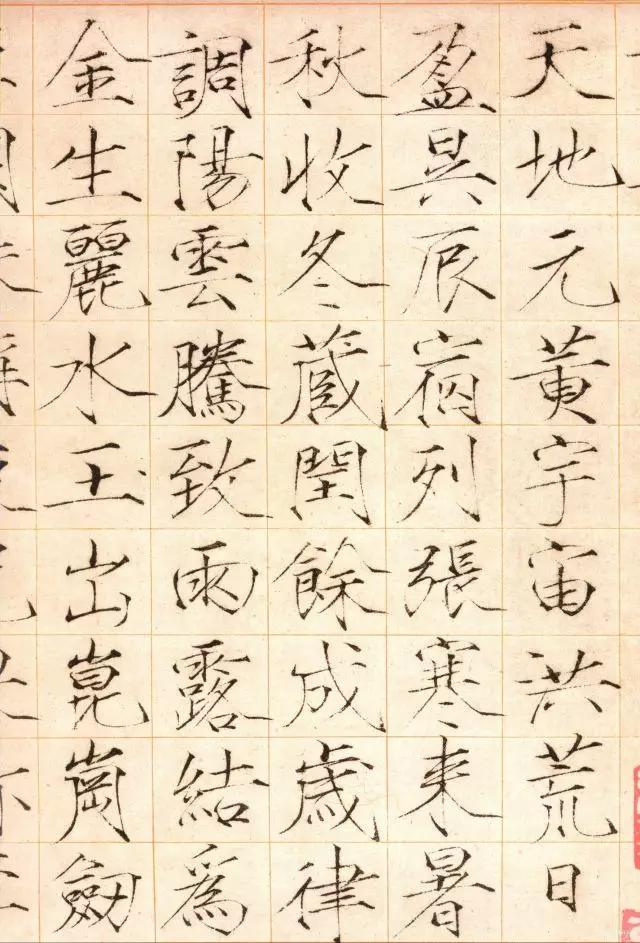 天地元黄宇宙洪荒日
盈昃辰宿列張寒来暑
秋收冬蔵閏餘成歲律
調陽雲騰致雨露結爲
金生麗水玉出崑崗劒